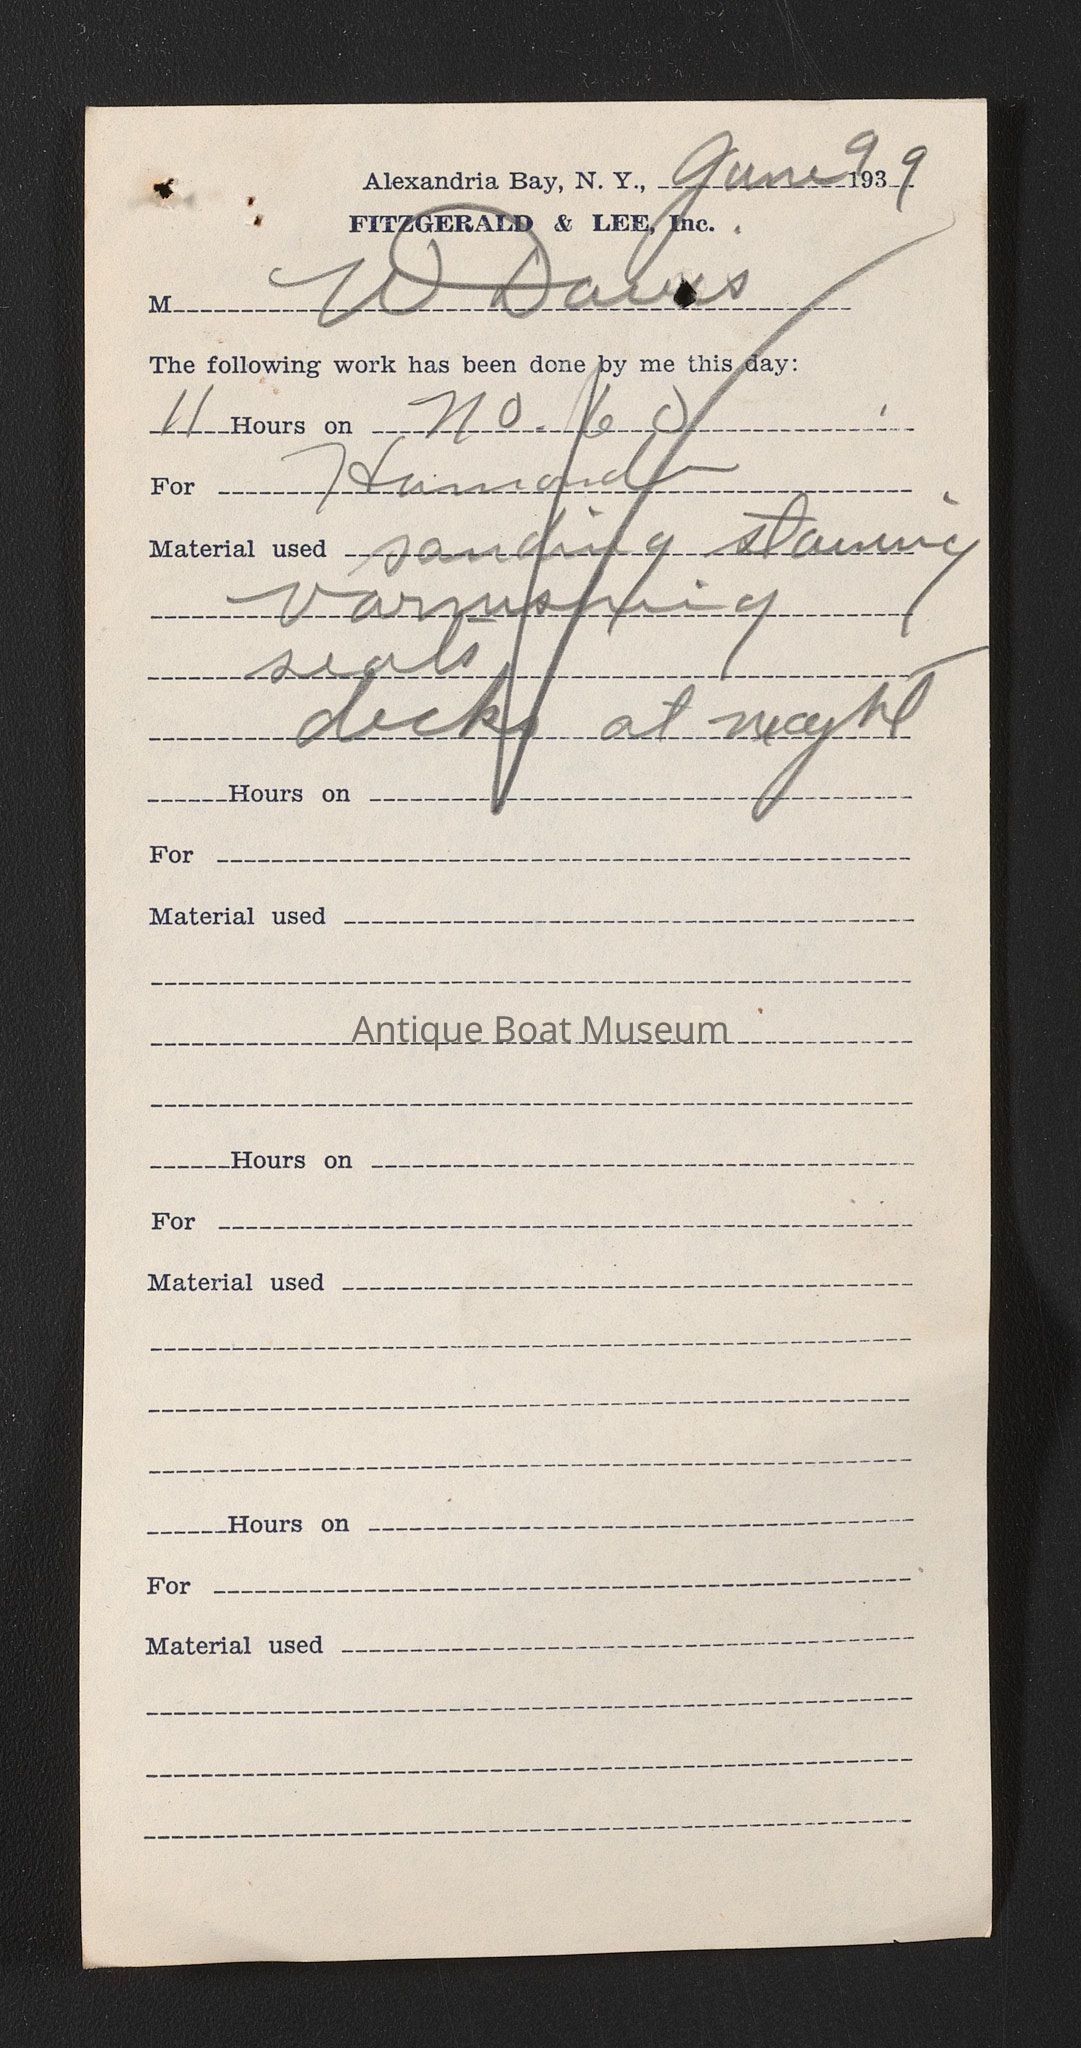 Alexandria Bay, N. Y., June 9 1939
FITZGERALD & LEE, Inc.
M W Davis
The following work has been done by me this day:
11 Hours on No. 60
For
Material used sanding staining
varnishing
seats
decks at
Hours on
For
Material used
Antique Boat Museum
Hours on
For
Material used
Hours on
For
Material used